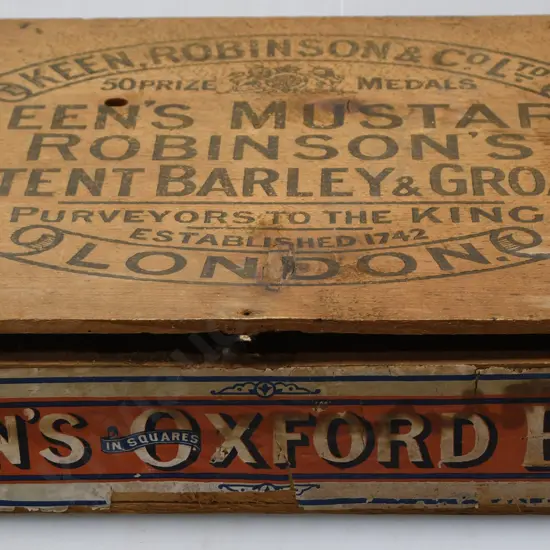 KEEN, ROBINSON & CO LTD
50 PRIZE MEDALS
EEN'S MUSTAR
ROBINSON'S
TENT BARLEY & GRO
PURVEYORS TO THE KING
ESTABLISHED 1742
LONDON.
N'S IN SQUARES OXFORD